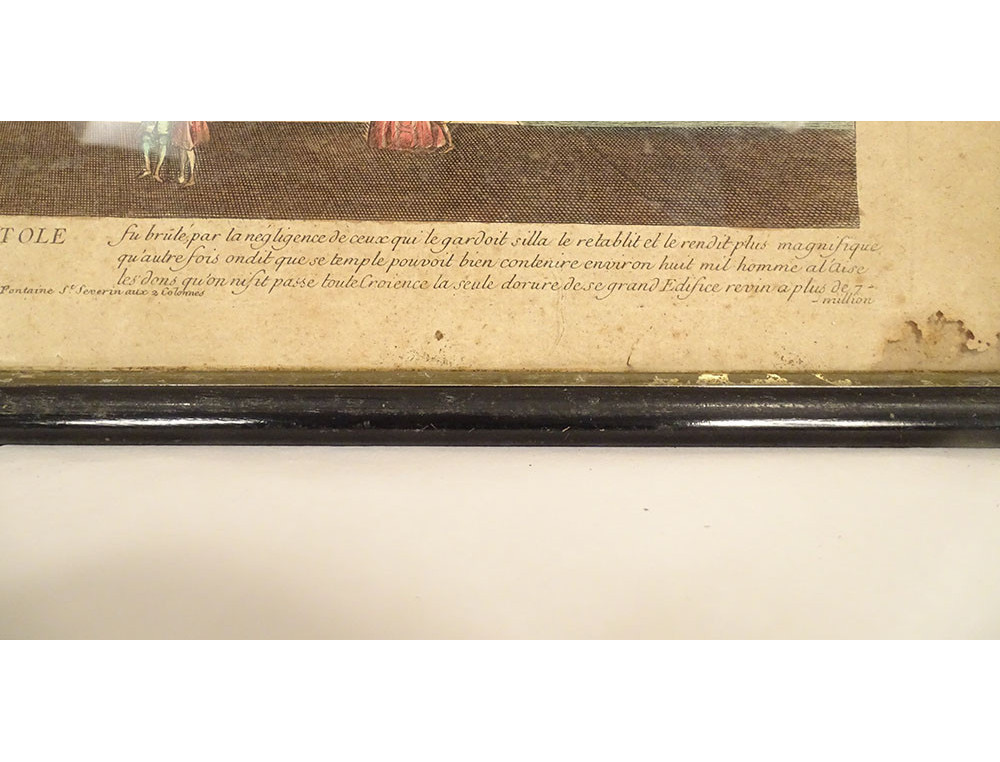 TOLE
fu brûlé, par la négligence de ceux qui le gardoit silla le retablit et le rendit plus magnifique
qu'autre fois ondit que se temple pouvoit bien contenire environ huit mil homme a l'aise
les dons qu'on nifit passe toute Croience la seule dorure de se grand Edifice revin a plus de 7-
-million
Fontaine St. Severin aux 2 Colonnes